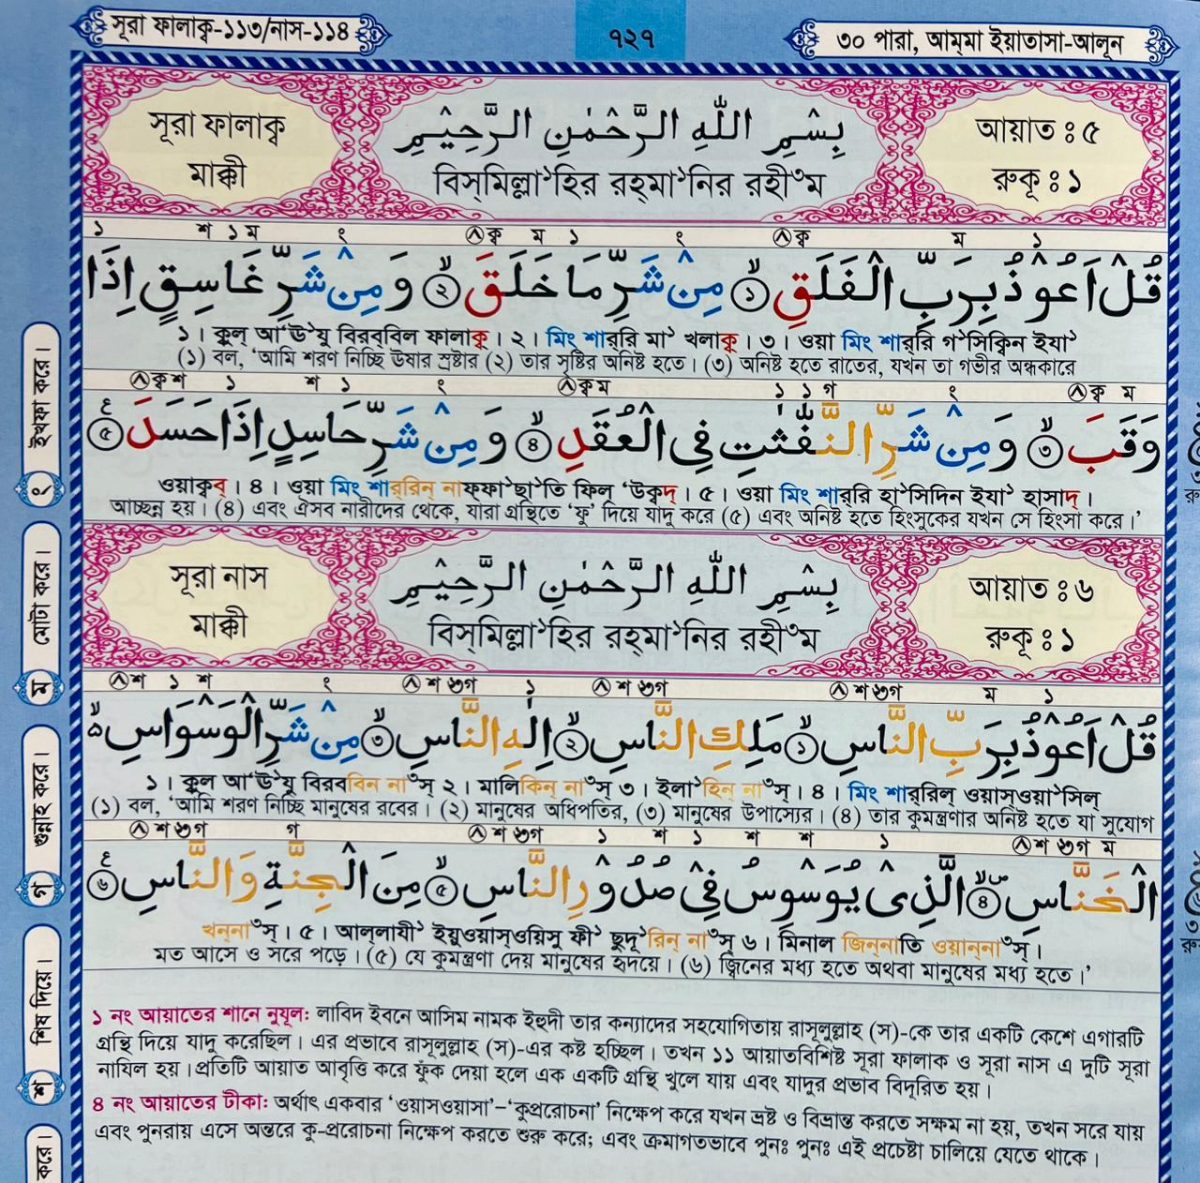 সূরা ফালাক্ব-১১৩/নাস-১১৪
৭২৭
৩০ পারা, আম্মা ইয়াতাসা-আলূন
সূরা ফালাক্ব
মাক্কী
بِسْمِ اللّٰهِ الرَّحْمٰنِ الرَّحِيْمِ
বিস্‌মিল্লা-হির রহ্‌মা-নির রহী-ম
আয়াত ঃ ৫
রুকূ ঃ ১
قُلْ اَعُوْذُ بِرَبِّ الْفَلَقِ ۙ﴿۱﴾ مِنْ شَرِّ مَا خَلَقَ ۙ﴿۲﴾ وَمِنْ شَرِّ غَاسِقٍ اِذَا
১। কুল্ আ'ঊ'যু বিরব্বিল ফালাকু। ২। মিং শার্‌রি মা' খলাকু। ৩। ওয়া মিং শার্‌রি গ'সিক্বিন ইযা'
(১) বল, 'আমি শরণ নিচ্ছি ঊষার স্রষ্টার (২) তার সৃষ্টির অনিষ্ট হতে। (৩) অনিষ্ট হতে রাতের, যখন তা গভীর অন্ধকারে
وَقَبَ ۙ﴿۳﴾ وَمِنْ شَرِّ النَّفّٰثٰتِ فِى الْعُقَدِ ۙ﴿۴﴾ وَمِنْ شَرِّ حَاسِدٍ اِذَا حَسَدَ ﴿۵﴾
ওয়াক্বব্। ৪। ওয়া মিং শার্‌রিন্ নাফ্‌ফা'ছা'তি ফিল 'উক্বদ্। ৫। ওয়া মিং শার্‌রি হা'সিদিন ইযা' হাসাদ্।
আচ্ছন্ন হয়। (৪) এবং ঐসব নারীদের থেকে, যারা গ্রন্থিতে 'ফু' দিয়ে যাদু করে (৫) এবং অনিষ্ট হতে হিংসুকের যখন সে হিংসা করে।'
সূরা নাস
মাক্কী
بِسْمِ اللّٰهِ الرَّحْمٰنِ الرَّحِيْمِ
বিস্‌মিল্লা-হির রহ্‌মা-নির রহী-ম
আয়াত ঃ ৬
রুকূ ঃ ১
قُلْ اَعُوْذُ بِرَبِّ النَّاسِ ۙ﴿۱﴾ مَلِكِ النَّاسِ ۙ﴿۲﴾ اِلٰهِ النَّاسِ ۙ﴿۳﴾ مِنْ شَرِّ الْوَسْوَاسِ
১। কুল আ'ঊ'যু বিরব্বিন না'স্ ২। মালিকিন্ না'স্ ৩। ইলা'হিন্ না'স্। ৪। মিং শার্‌রিল্ ওয়াস্‌ওয়া'সিল্
(১) বল, 'আমি শরণ নিচ্ছি মানুষের রবের। (২) মানুষের অধিপতির, (৩) মানুষের উপাস্যের। (৪) তার কুমন্ত্রণার অনিষ্ট হতে যা সুযোগ
الْخَنَّاسِ ﴿۴﴾ الَّذِىْ يُوَسْوِسُ فِىْ صُدُوْرِ النَّاسِ ۙ﴿۵﴾ مِنَ الْجِنَّةِ وَالنَّاسِ ﴿۶﴾
খন্না'স্। ৫। আল্‌লাযী' ইয়ুওয়াস্‌ওয়িসু ফী' ছুদূ'রিন্ না'স্ ৬। মিনাল জিন্‌নাতি ওয়ান্‌না'স্।
মত আসে ও সরে পড়ে। (৫) যে কুমন্ত্রণা দেয় মানুষের হৃদয়ে। (৬) জ্বিনের মধ্য হতে অথবা মানুষের মধ্য হতে।'
১ নং আয়াতের শানে নুযূল: লাবিদ ইবনে আসিম নামক ইহুদী তার কন্যাদের সহযোগিতায় রাসূলুল্লাহ (স)-কে তার একটি কেশে এগারটি
গ্রন্থি দিয়ে যাদু করেছিল। এর প্রভাবে রাসূলুল্লাহ (স)-এর কষ্ট হচ্ছিল। তখন ১১ আয়াতবিশিষ্ট সূরা ফালাক ও সূরা নাস এ দুটি সূরা
নাযিল হয়। প্রতিটি আয়াত আবৃত্তি করে ফুঁক দেয়া হলে এক একটি গ্রন্থি খুলে যায় এবং যাদুর প্রভাব বিদূরিত হয়।
৪ নং আয়াতের টীকা: অর্থাৎ একবার 'ওয়াসওয়াসা'–'কুপ্ররোচনা' নিক্ষেপ করে যখন ভ্রষ্ট ও বিভ্রান্ত করতে সক্ষম না হয়, তখন সরে যায়
এবং পুনরায় এসে অন্তরে কু-প্ররোচনা নিক্ষেপ করতে শুরু করে; এবং ক্রমাগতভাবে পুনঃ পুনঃ এই প্রচেষ্টা চালিয়ে যেতে থাকে।
ইখফা করে।
মোটা করে।
ম
গুন্নাহ করে।
গ
শিষ দিয়ে।
শ
করে।